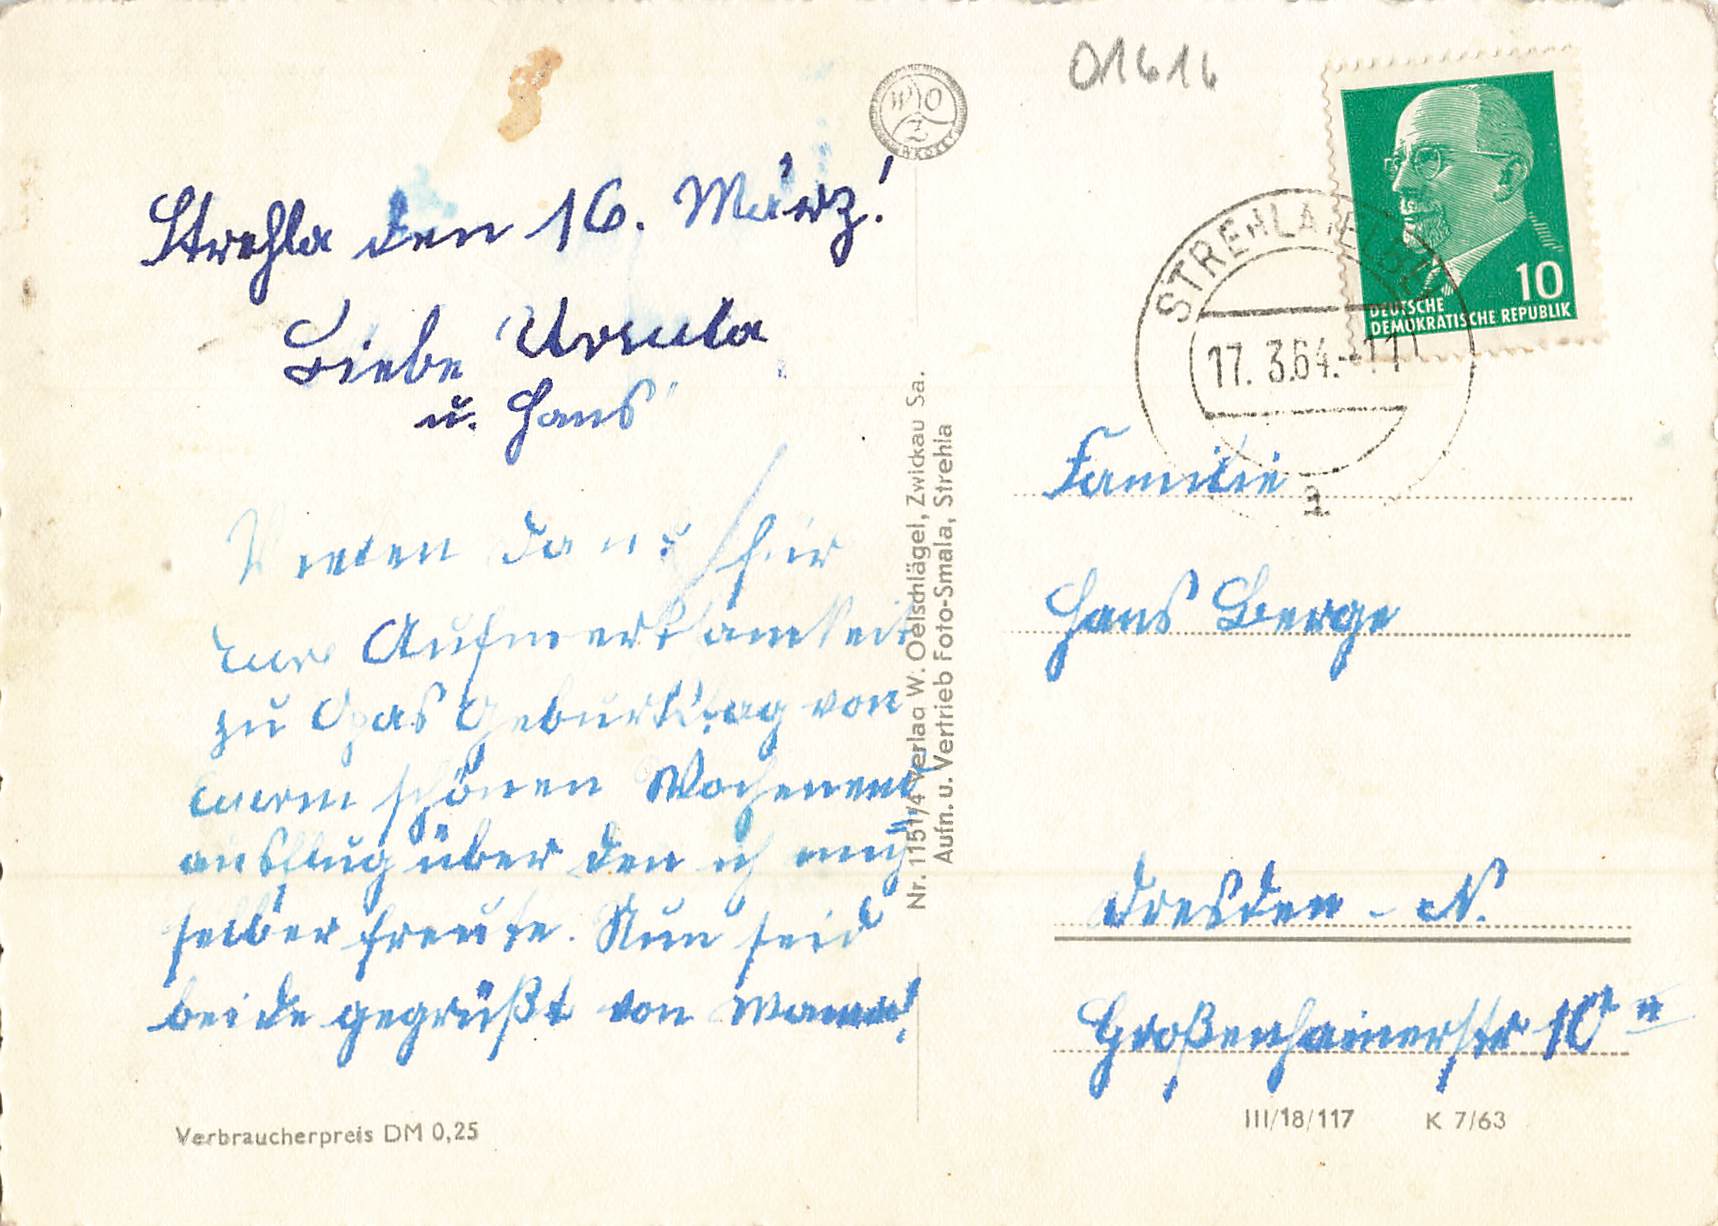 01616
W O Z
Strehla den 16. März!
Liebe Ursula
u. Hans
Vielen Dank für
Eure Aufmerksamkeit
zu Opas Geburtstag von
Eurem schönen Wochenend
ausflug über den ich mich
selber freute. Nun seid
beide gegrüßt von
Verbraucherpreis DM 0,25
Nr. 1151/4 Verlag W. Oelschlägel, Zwickau Sa.
Aufn. u. Vertrieb Foto-Smala, Strehla
10
DEUTSCHE
DEMOKRATISCHE REPUBLIK
STREHLA (ELBE)
17. 3.64.-11
a
Familie
Hans Berge
Dresden - N.
Großenhainerstr
III/18/117 K 7/63